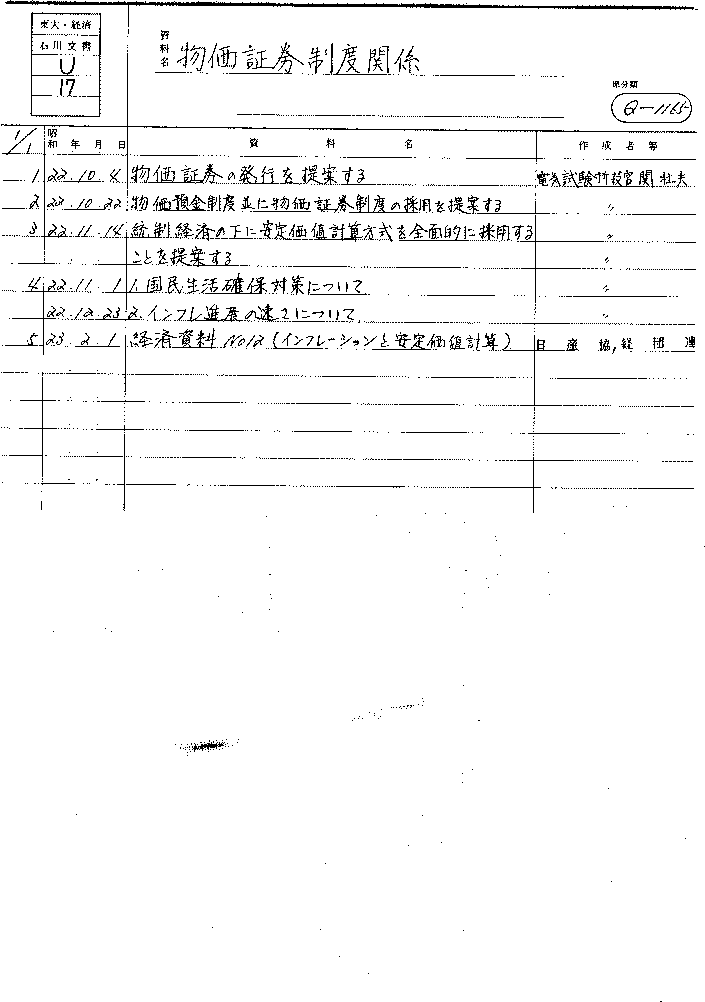 東大・経済
石川文書
U
17
資料名 物価証券制度関係
原分類
Q-1165
1/1 昭和 年 月 日 資料名 作成者等
1 22.10.4 物価証券の発行を提案する 電気試験所技官 関 壮夫
2 22.10.22 物価預金制度並に物価証券制度の採用を提案する 〃
3 22.11.14 統制経済の下に安定価値計算方式を全面的に採用する 〃
ことを提案する 〃
4 22.11.1 1.国民生活確保対策について 〃
22.12.23 2.インフレ進展の速さについて 〃
5 23.2.1 経済資料 No12 (インフレーションと安定価値計算) 日産協,経団連